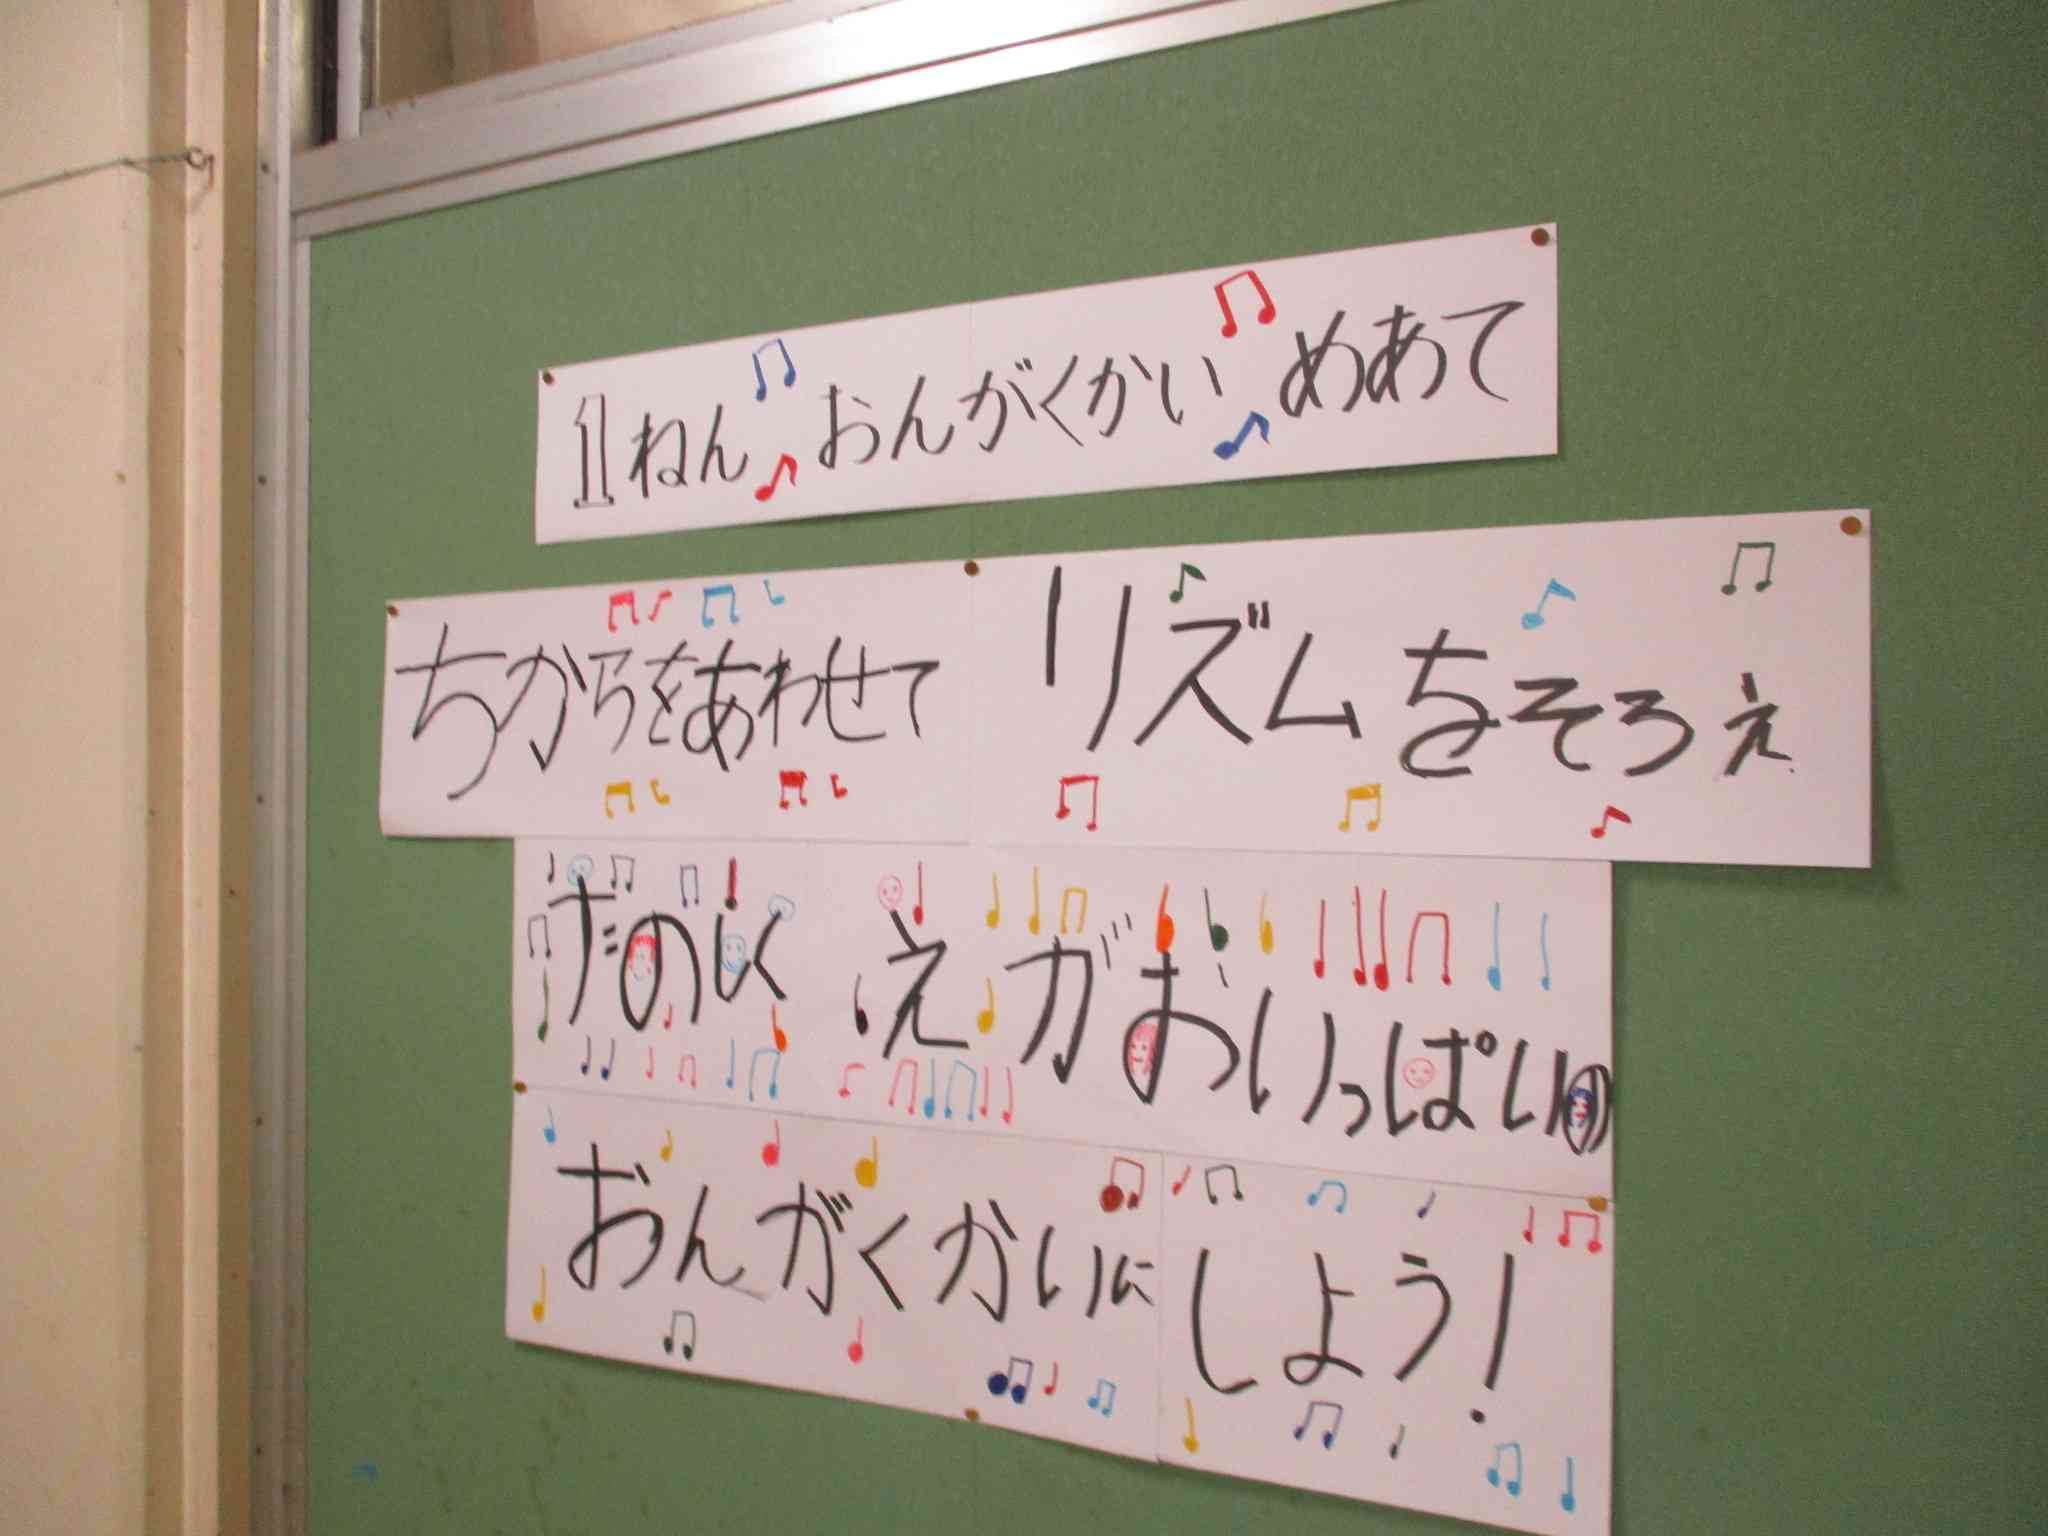 1ねん おんがくかい めあて
ちからをあわせて リズムをそろえ
たのしく えがおいっぱいの
おんがくかいに しよう!